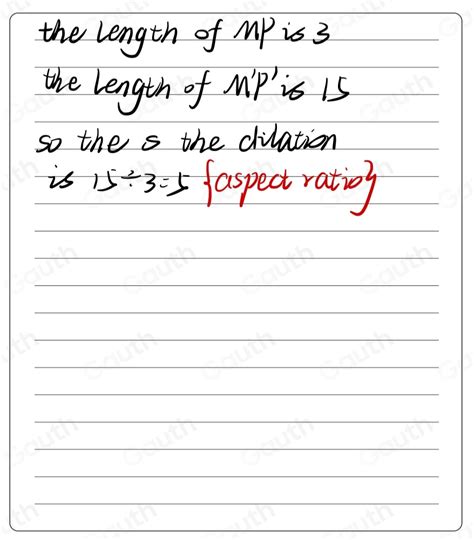 the length of MP is 3
the length of M'P' is 15
so the s the dilation
is 15÷3=5 {aspect ratio}